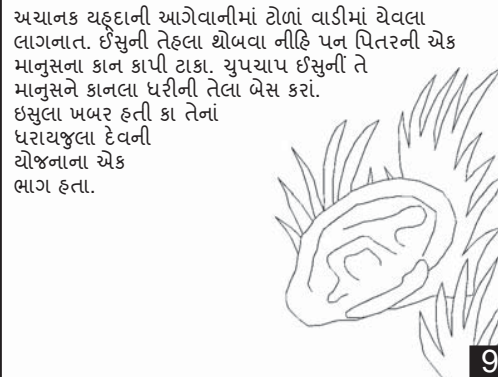 અચાનક યહૂદાની આગેવાનીમાં ટોળાં વાડીમાં યેવલા
લાગનાત. ઈસુની તેહલા થોબવા નીહિ પન પિતરની એક
માનુસના કાન કાપી ટાકા. ચુપચાપ ઈસુનીં તે
માનુસને કાનલા ધરીની તેલા બેસ કરાં.
ઇસુલા ખબર હતી કા તેનાં
ધરાયજુલા દેવની
યોજનાના એક
ભાગ હતા.
9